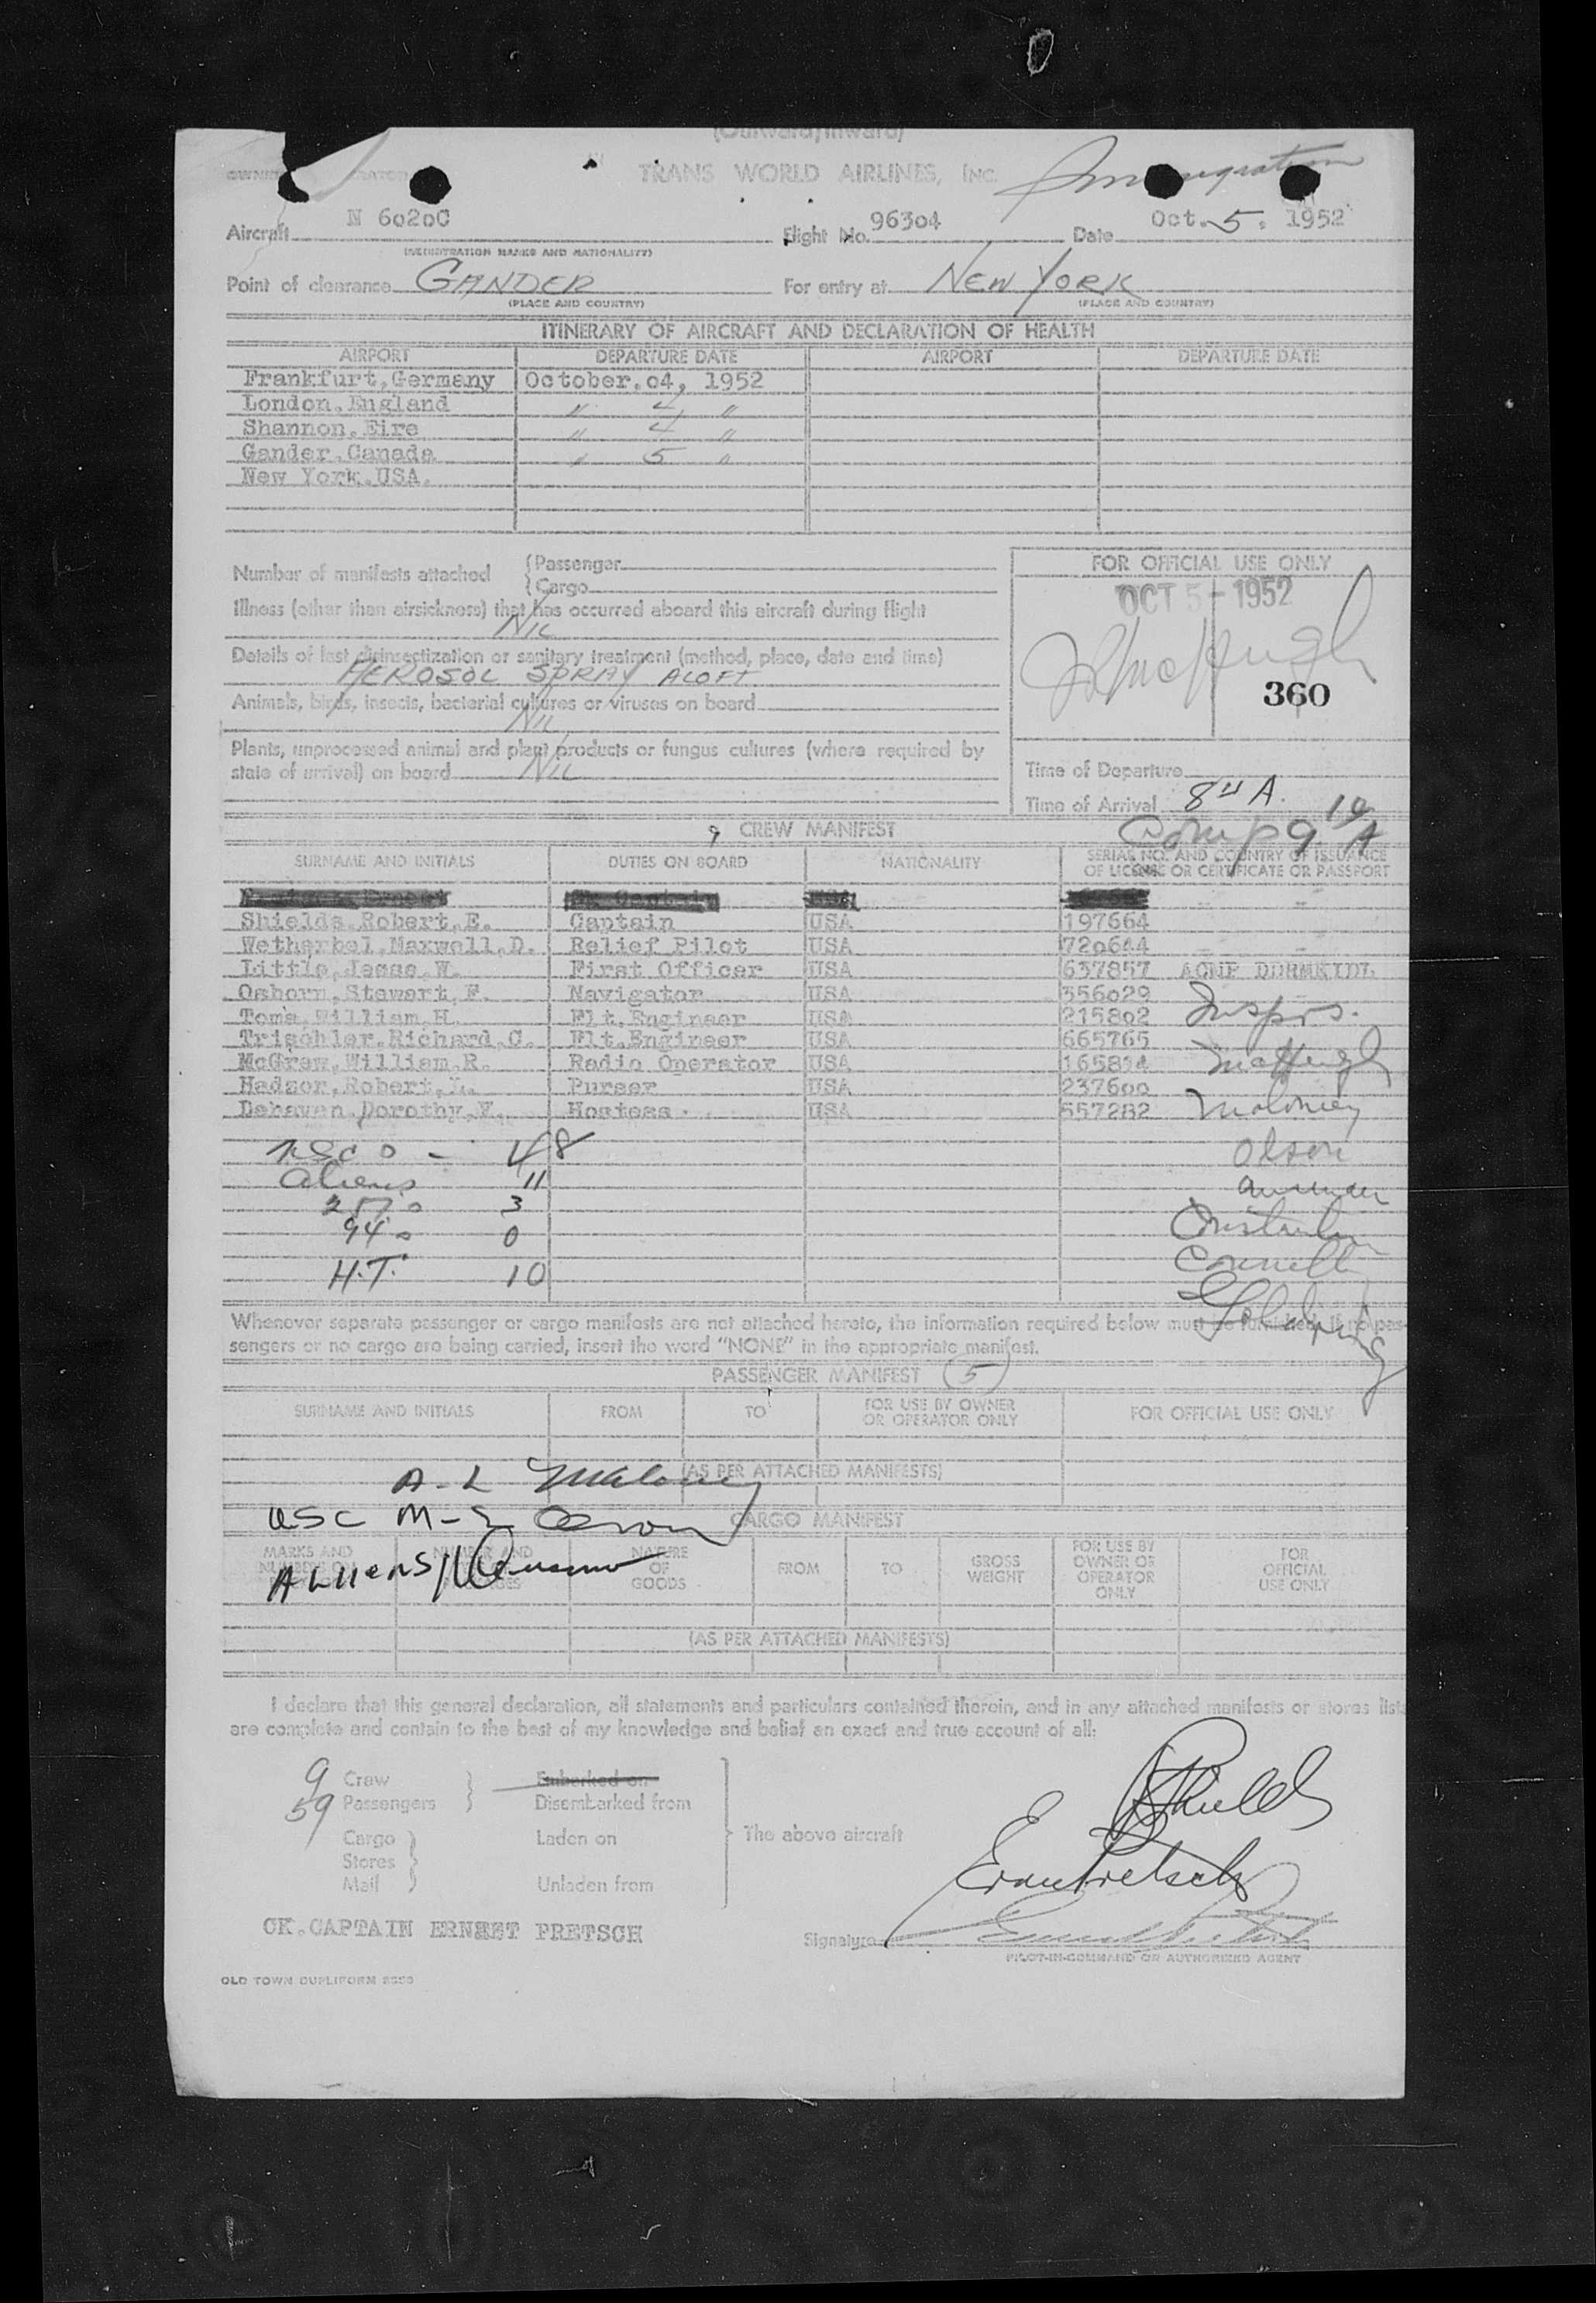 (Outward/Inward)
TRANS WORLD AIRLINES, INC.
Immigration
Aircraft N 6020C Flight No. 96304 Date Oct. 5. 1952
(REGISTRATION MARKS AND NATIONALITY)
Point of clearance GANDER For entry at NEW YORK
(PLACE AND COUNTRY) (PLACE AND COUNTRY)
ITINERARY OF AIRCRAFT AND DECLARATION OF HEALTH
AIRPORT DEPARTURE DATE AIRPORT DEPARTURE DATE
Frankfurt,Germany October.04, 1952
London.England " 4 "
Shannon.Eire " 4 "
Gander.Canada " 5 "
New York.USA.
Number of manifests attached {Passenger
{Cargo
Illness (other than airsickness) that has occurred aboard this aircraft during flight
NIL
Details of last disinsectization or sanitary treatment (method, place, date and time)
AEROSOL SPRAY ALOFT
Animals, birds, insects, bacterial cultures or viruses on board
NIL
Plants, unprocessed animal and plant products or fungus cultures (where required by
state of arrival) on board NIL
FOR OFFICIAL USE ONLY
OCT 5 - 1952
360
Time of Departure
Time of Arrival 8 11 A.
Comp 9 10 A
9 CREW MANIFEST
SURNAME AND INITIALS DUTIES ON BOARD NATIONALITY SERIAL NO. AND COUNTRY OF ISSUANCE
OF LICENSE OR CERTIFICATE OR PASSPORT
Shields.Robert.E. Captain USA 197664
Wetherbel.Maxwell.D. Relief Pilot USA 720644
Little.Jesse.W. First Officer USA 637857
Osborn.Stewart.F. Navigator USA 356029
Toms.William.H. Flt.Engineer USA 215802
Trischler.Richard.C. Flt.Engineer USA 665765
McGrew.William.R. Radio Operator USA 165814
Hadzor.Robert.L. Purser USA 237600
Dehaven.Dorothy.V. Hostess USA 557282
Insprs.
McHugh
Maloney
Olson
Connell
USC s - 48
Aliens 11
257 s 3
94 s 0
H.T. 10
Whenever separate passenger or cargo manifests are not attached hereto, the information required below must be furnished. If no pas-
sengers or no cargo are being carried, insert the word "NONE" in the appropriate manifest.
PASSENGER MANIFEST 5
SURNAME AND INITIALS FROM TO FOR USE BY OWNER
OR OPERATOR ONLY FOR OFFICIAL USE ONLY
(AS PER ATTACHED MANIFESTS)
A-L Maloney
USC M-Z Olson
CARGO MANIFEST
MARKS AND
NUMBERS ON NUMBER AND NATURE
OF
GOODS FROM TO GROSS
WEIGHT FOR USE BY
OWNER OR
OPERATOR
ONLY FOR
OFFICIAL
USE ONLY
ALIENS
(AS PER ATTACHED MANIFESTS)
I declare that this general declaration, all statements and particulars contained therein, and in any attached manifests or stores lists
are complete and contain to the best of my knowledge and belief an exact and true account of all:
9 Crew Embarked on
59 Passengers Disembarked from
Cargo Laden on The above aircraft
Stores
Mail Unladen from
RShields
Ernst Pretsch
CK.CAPTAIN ERNEST PRETSCH
Signature
PILOT-IN-COMMAND OR AUTHORIZED AGENT
OLD TOWN DUPLIFORM